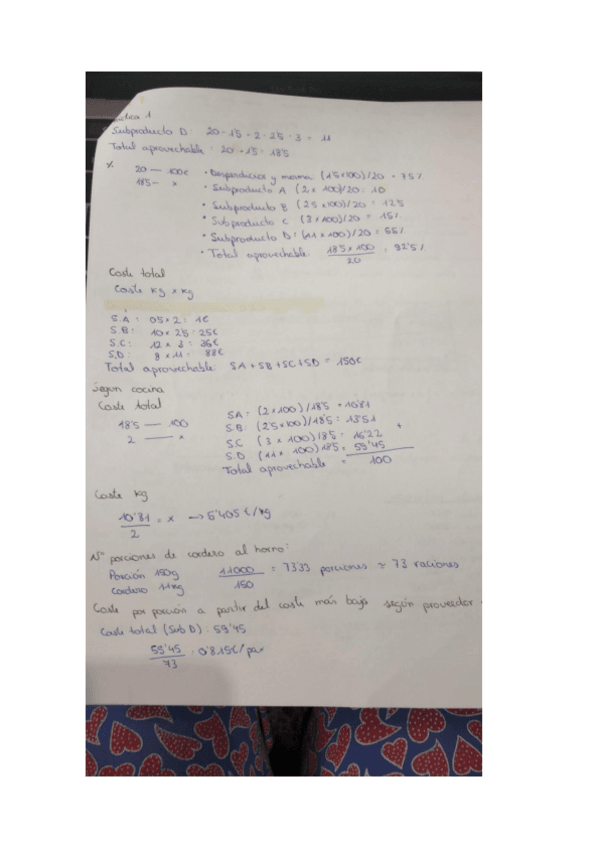 1
Subproducto D: 20 - 1'5 - 2 - 2'5 - 3 = 11
Total aprovechable: 20 - 1'5 = 18'5
%
20 — 100€
18'5 — x
• Desperdicios y merma: (1'5x100)/20 = 7'5%
• Subproducto A (2 x 100)/20 = 10
• Subproducto B (2'5 x100)/20 = 12'5
• Subproducto C (3 x 100)/20 = 15%
• Subproducto D: (11 x 100)/20 = 55%
• Total aprovechable: 18'5 x 100 / 20 = 92'5%
Coste total
Coste Kg x Kg
S.A: 0'5 x 2 = 1€
S.B: 10 x 2'5 = 25€
S.C: 12 x 3 = 36€
S.D: 8 x 11 = 88€
Total aprovechable: SA + SB + SC + SD = 150€
Segun cocina
Coste total
18'5 — 100
2 — x
SA: (2 x 100)/18'5 = 10'81
S.B: (2'5 x 100)/18'5 = 13'51
S.C (3 x 100)18'5 = 16'22
S.D (11 x 100)18'5 = 59'45
Total aprovechable = 100
Coste Kg
10'81 / 2 = x → 5'405 €/Kg
Nº porciones de cordero al horno:
Porción 150g
Cordero 11kg
11000 / 150 = 73'33 porciones ≈ 73 raciones
Coste por porción a partir del coste más bajo según proveedor
Coste total (Sub D): 59'45
59'45 / 73 = 0'815€/pax